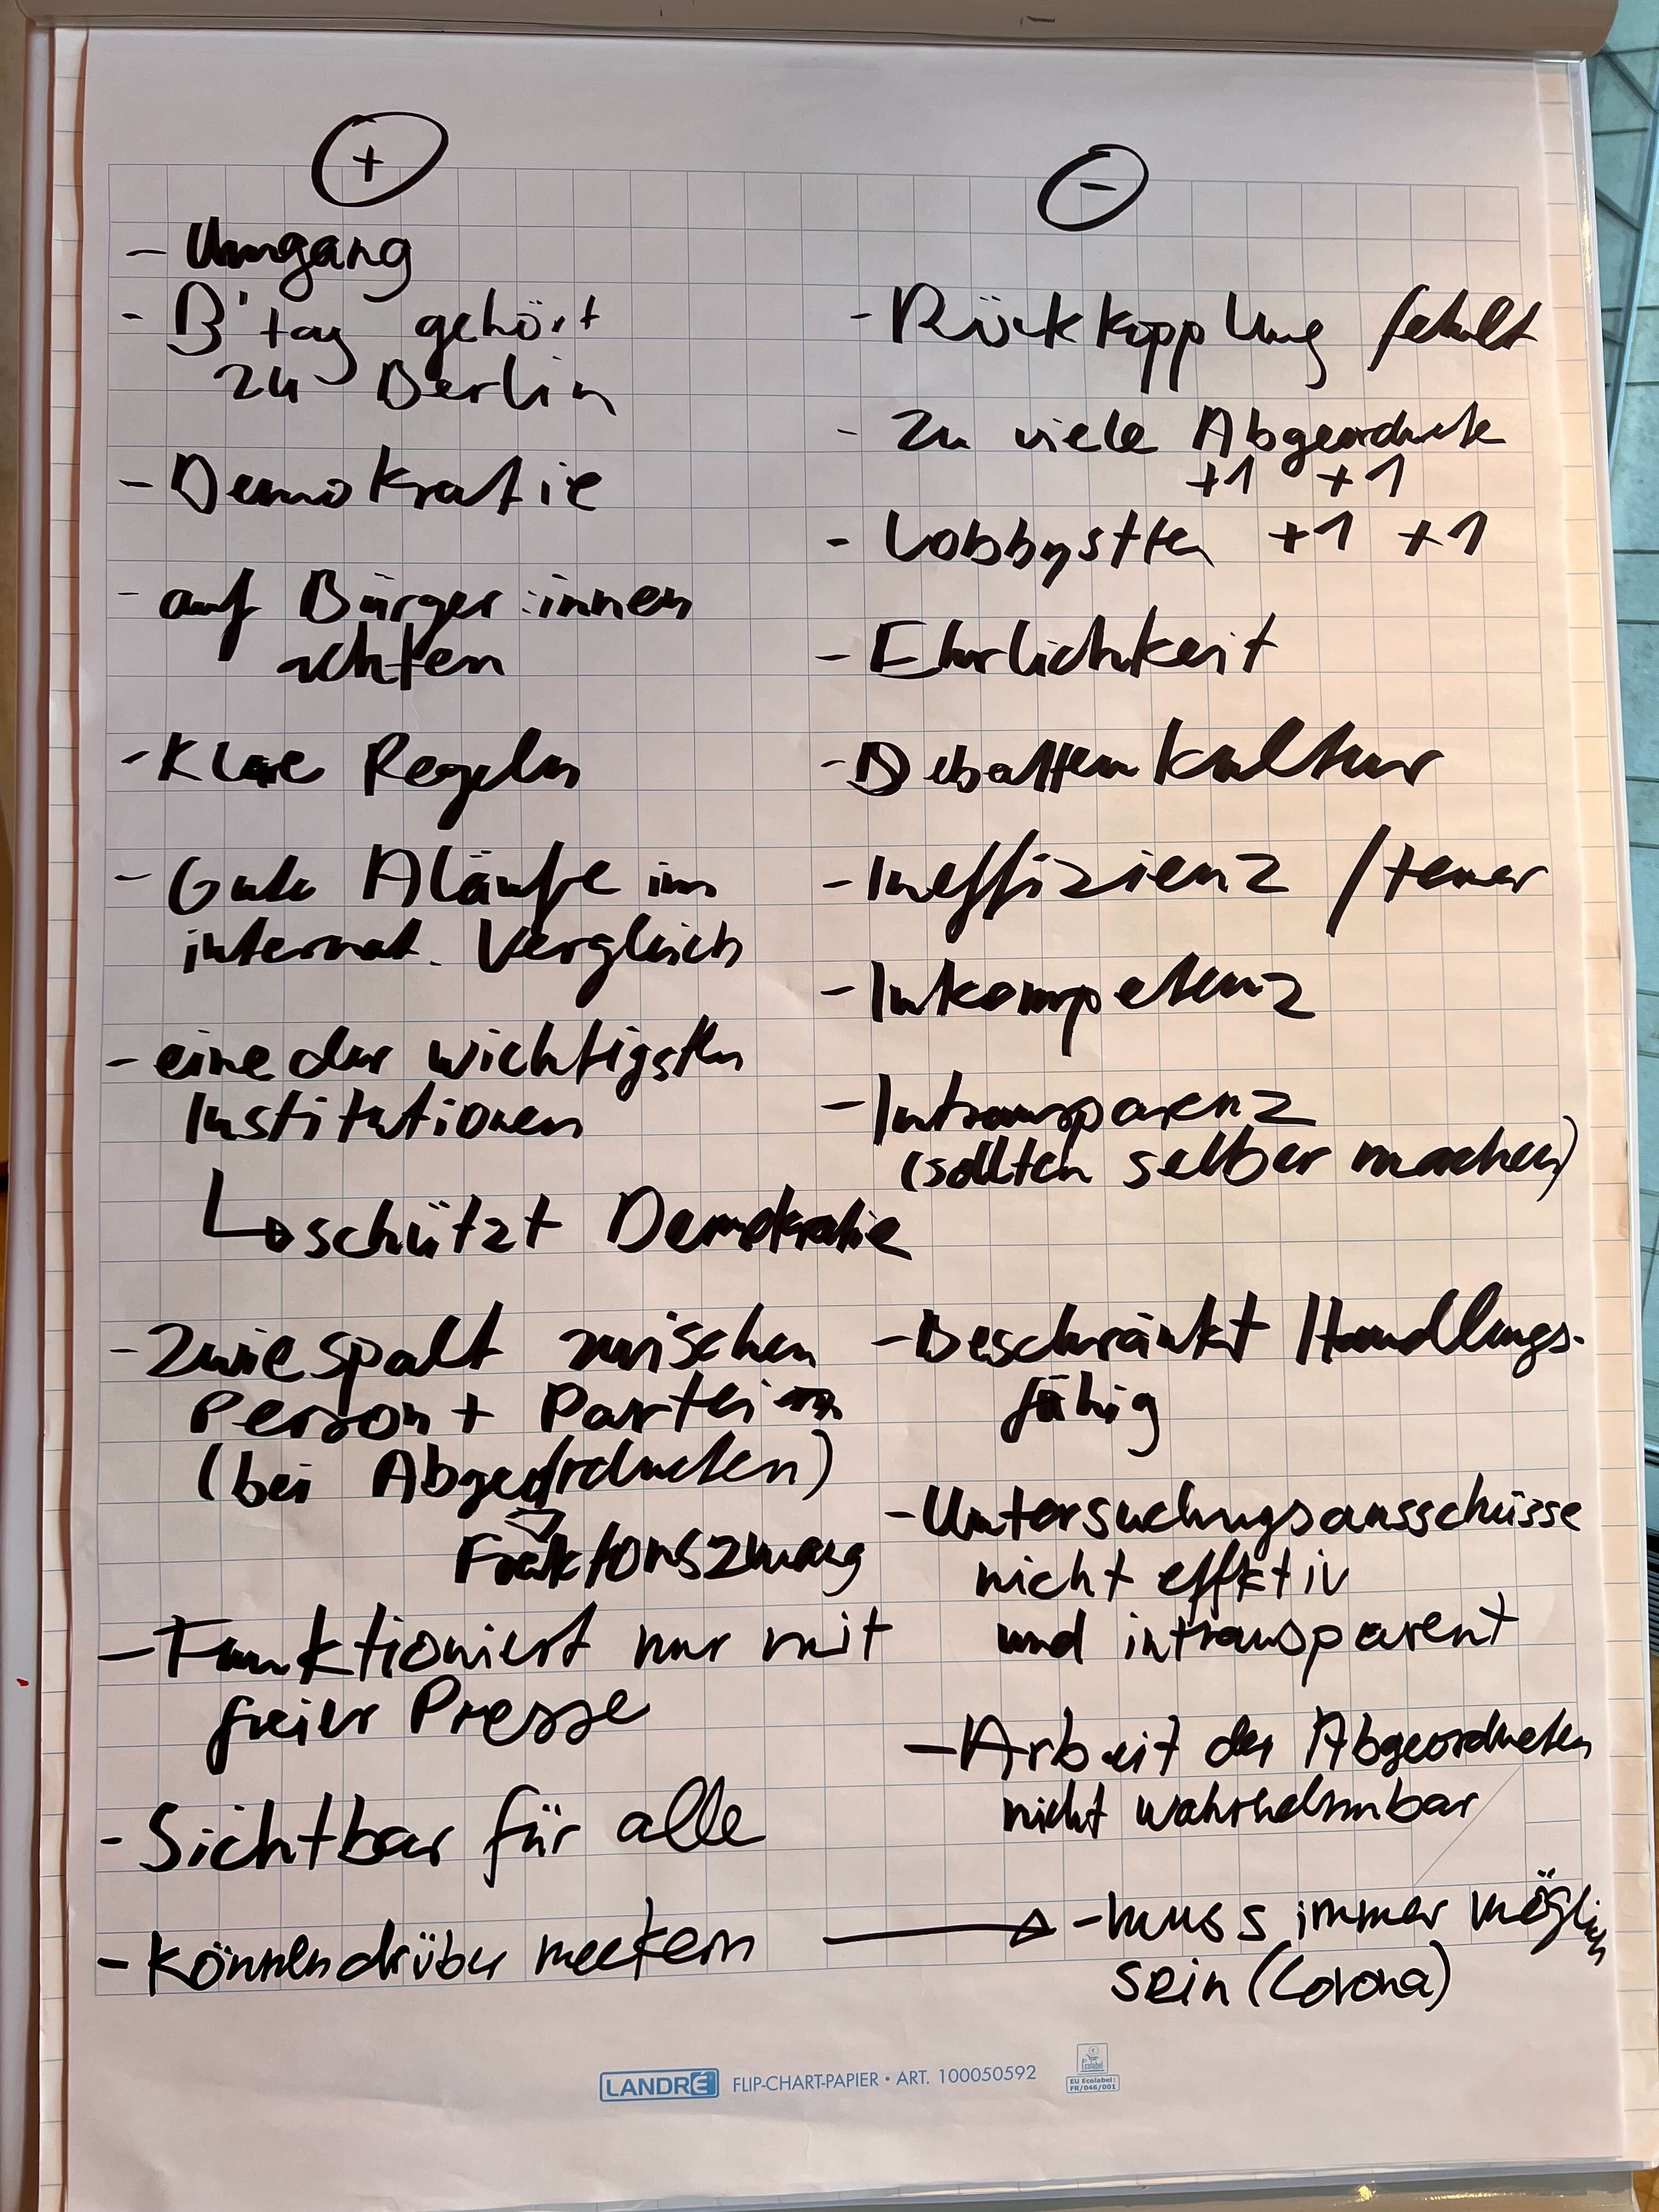 +
- Umgang
- B'tag gehört
zu Berlin
- Demokratie
- auf Bürger:innen
achten
- Klare Regeln
- Gute Aläufe im
internat. Vergleich
- eine der wichtigsten
Institutionen
↳ schützt Demokratie
- Zwiespalt zwischen
Person + Partei
(bei Abgeordneten)
Fraktonszwang
- Funktioniert nur mit
freier Presse
- Sichtbar für alle
- Können drüber meckern
-
- Rückkopplung fehlt
- Zu viele Abgeordnete
+1 +1
- Lobbysten +1 +1
- Ehrlichkeit
- Debattenkultur
- Ineffizienz / teuer
- Inkompetenz
- Intransparenz
(sollten selber machen)
- Beschränkt Handlungs-
fähig
- Untersuchungsausschüsse
nicht effktiv
und intransparent
- Arbeit der Abgeordneten
nicht wahrnehmbar
→ - muss immer möglich
sein (Corona)
LANDRÉ FLIP-CHART-PAPIER • ART. 100050592
Ecolabel
EU Ecolabel:
FR/046/001